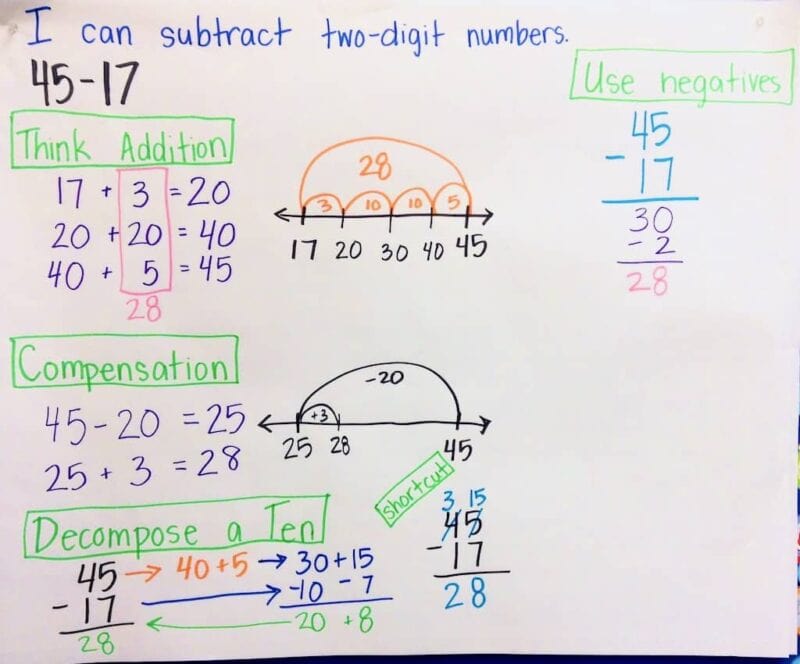 I can subtract two-digit numbers.
45-17
Think Addition
17 + 3 = 20
20 + 20 = 40
40 + 5 = 45
28
28
3 10 10 5
17 20 30 40 45
Use negatives
45
- 17
30
- 2
28
Compensation
45 - 20 = 25
25 + 3 = 28
-20
+3
25 28 45
Decompose a Ten
45 → 40 + 5 → 30 + 15
- 17 → -10 - 7
28 ← 20 + 8
shortcut
3 15
45
- 17
28